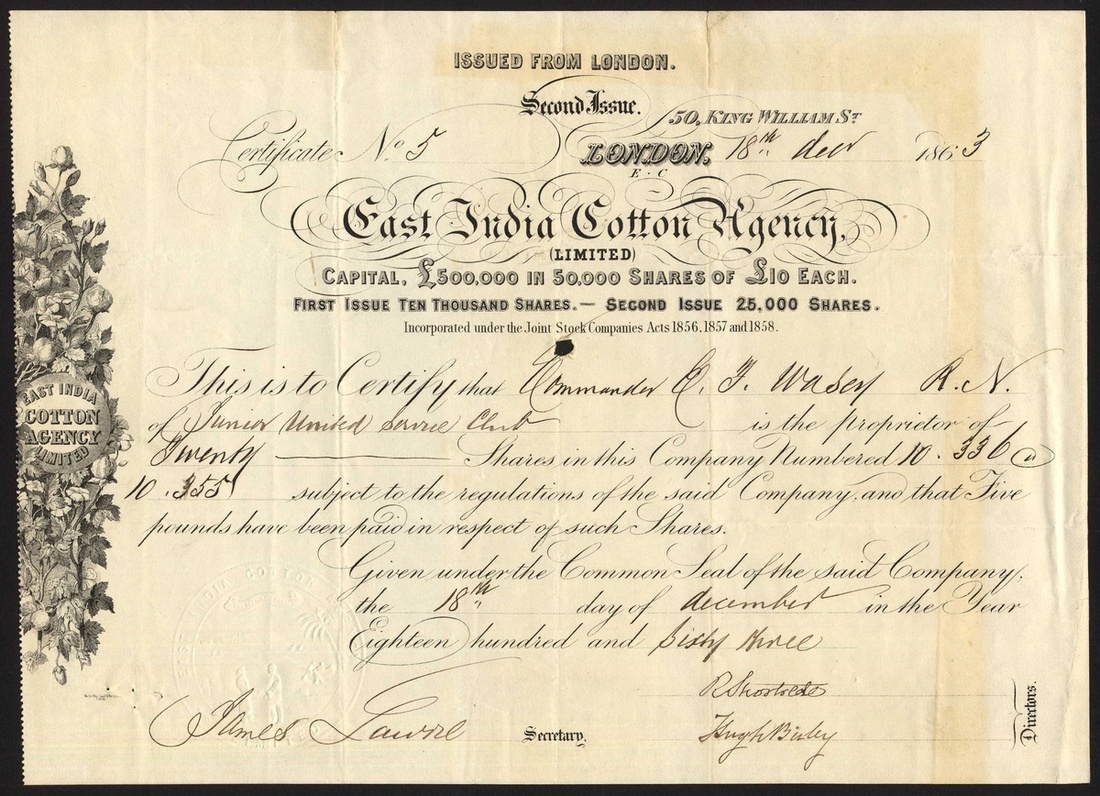 ISSUED FROM LONDON.
Second Issue.
50, KING WILLIAM ST
Certificate No 5
LONDON, 18th decr 1863
E.C
East India Cotton Agency,
(LIMITED)
CAPITAL, £500,000 IN 50,000 SHARES OF £10 EACH.
FIRST ISSUE TEN THOUSAND SHARES. — SECOND ISSUE 25,000 SHARES.
Incorporated under the Joint Stock Companies Acts 1856, 1857 and 1858.
This is to Certify that Commander E. F. R. N.
of Junior United Service Club is the proprietor of
Twenty Shares in this Company Numbered 10.336 a
10.355 subject to the regulations of the said Company, and that Five
pounds have been paid in respect of such Shares.
Given under the Common Seal of the said Company,
the 18th day of december in the Year
Eighteen hundred and Sixty three
EAST INDIA
COTTON
AGENCY
LIMITED
James Lawrie Secretary.
R Shortrede
Hugh Birley
Directors.